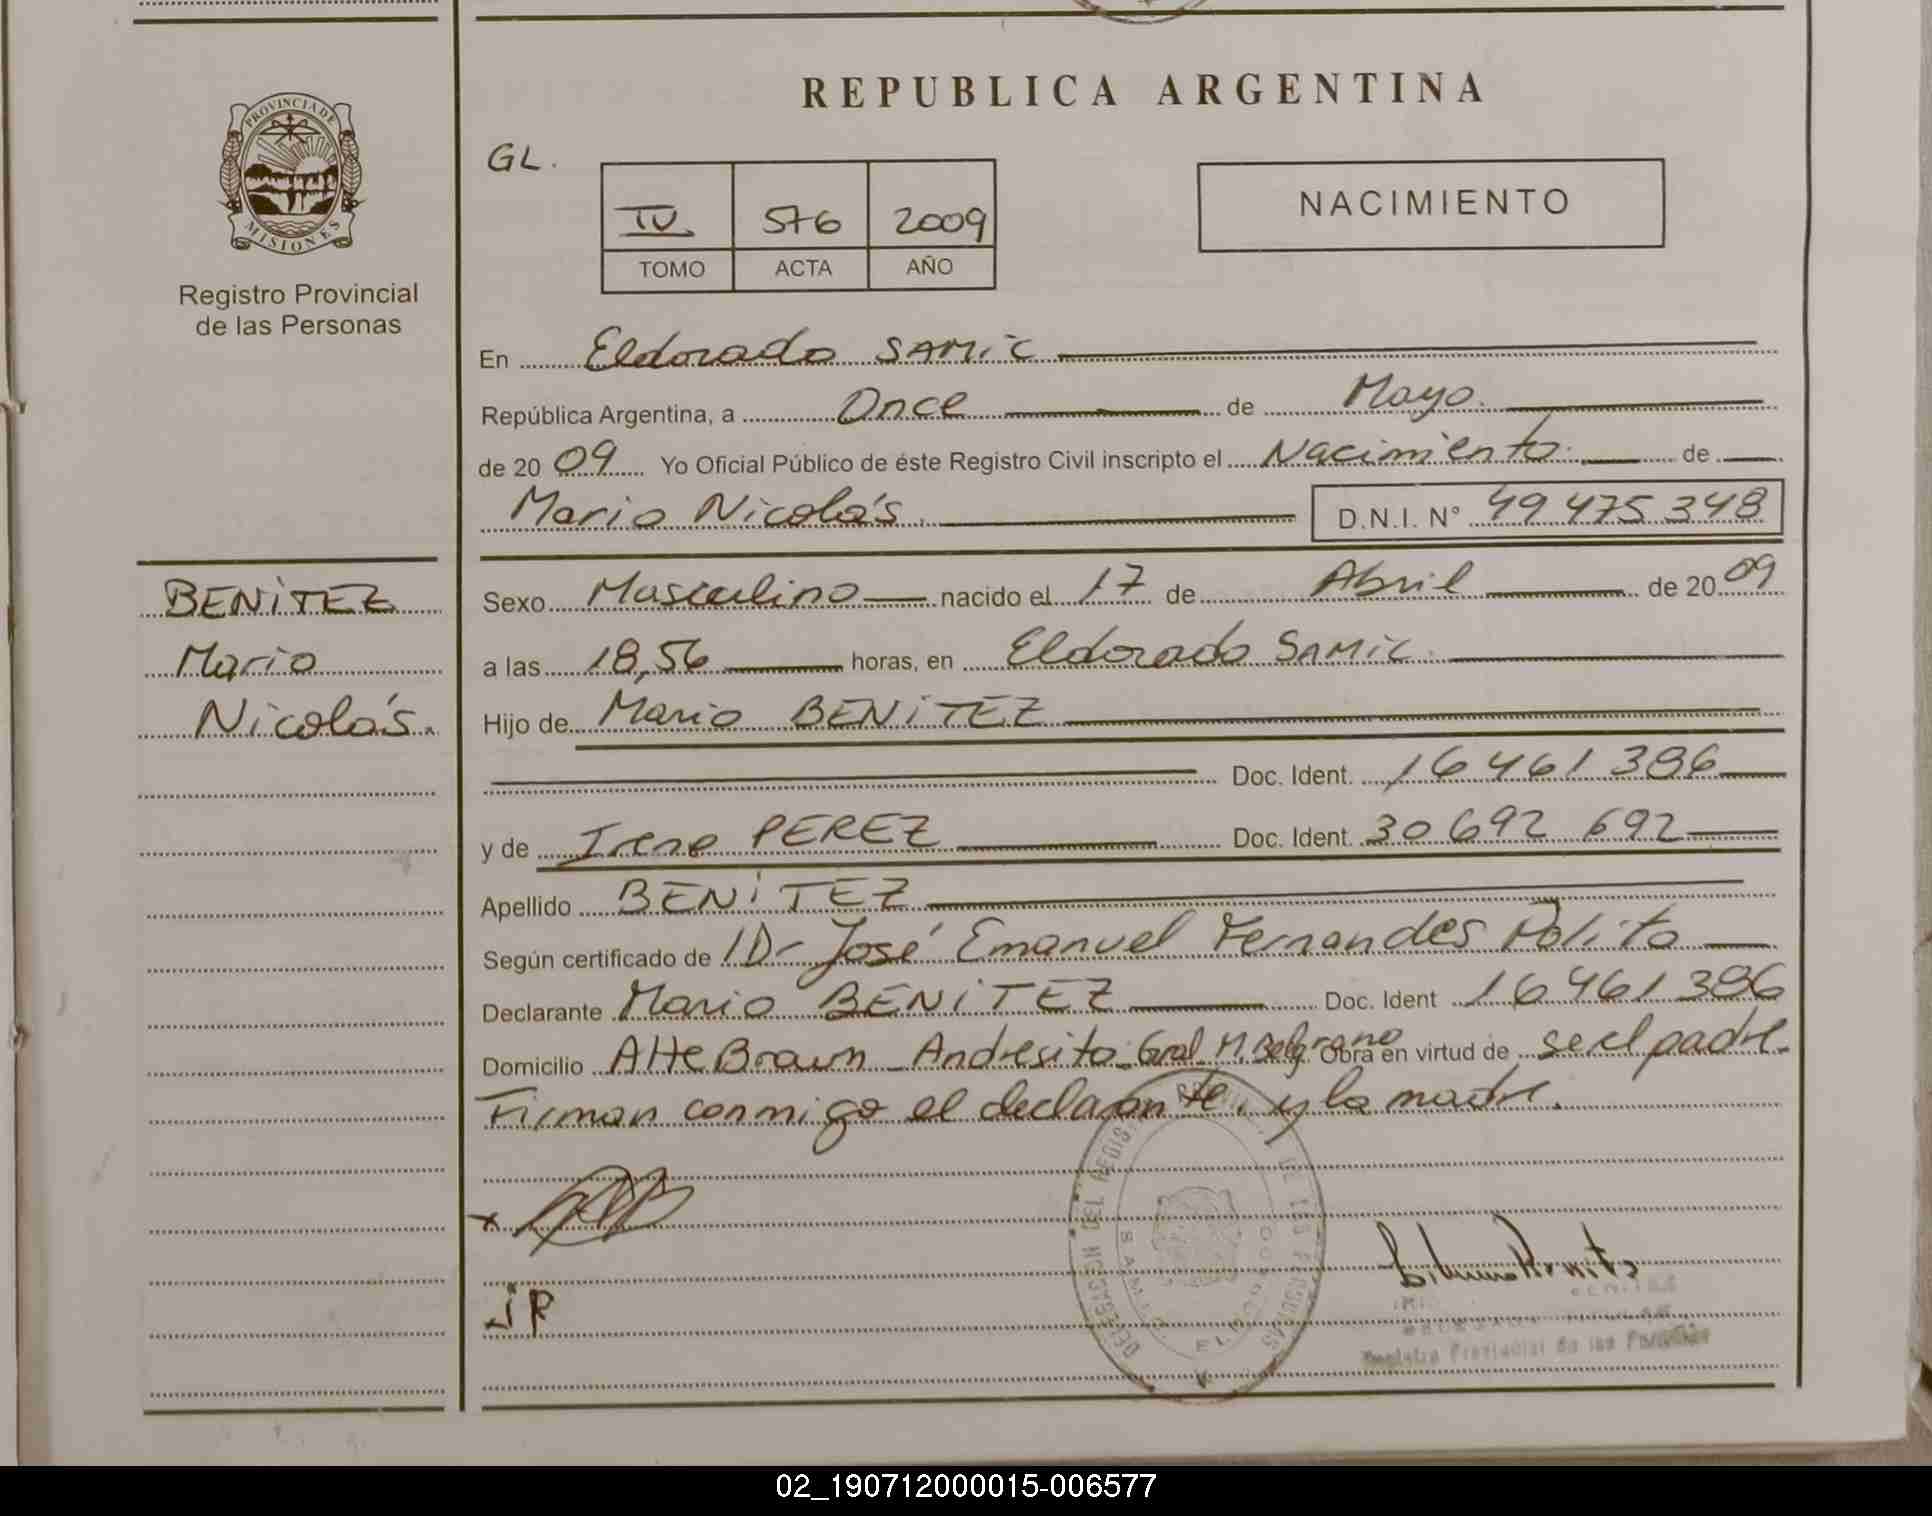 REPUBLICA ARGENTINA
PROVINCIA DE
MISIONES
Registro Provincial
de las Personas
GL.
IV 576 2009
TOMO ACTA AÑO
NACIMIENTO
En Eldorado SAMIC
República Argentina, a Once de Mayo.
de 2009 Yo Oficial Público de éste Registro Civil inscripto el Nacimiento de
Mario Nicolás. D.N.I. N° 49 475 348
BENITEZ
Mario
Nicolás.
Sexo Masculino nacido el 17 de Abril de 2009
a las 18,56 horas, en Eldorado SAMIC.
Hijo de Mario BENITEZ
Doc. Ident. 16 461 386
y de Irene PEREZ Doc. Ident. 30 692 692
Apellido BENITEZ
Según certificado de Dr José Emanuel Fernandes Polito
Declarante Mario BENITEZ Doc. Ident 16 461 386
Domicilio Alte Brown - Andresito - Gral M. Belgrano Obra en virtud de ser el padre.
Firman conmigo el declarante, y la madre.
DELEGACION DEL REGISTRO DE LAS PERSONAS
SAMIC ELDORADO
x
IP
Registro Provincial de las Personas
02_190712000015-006577